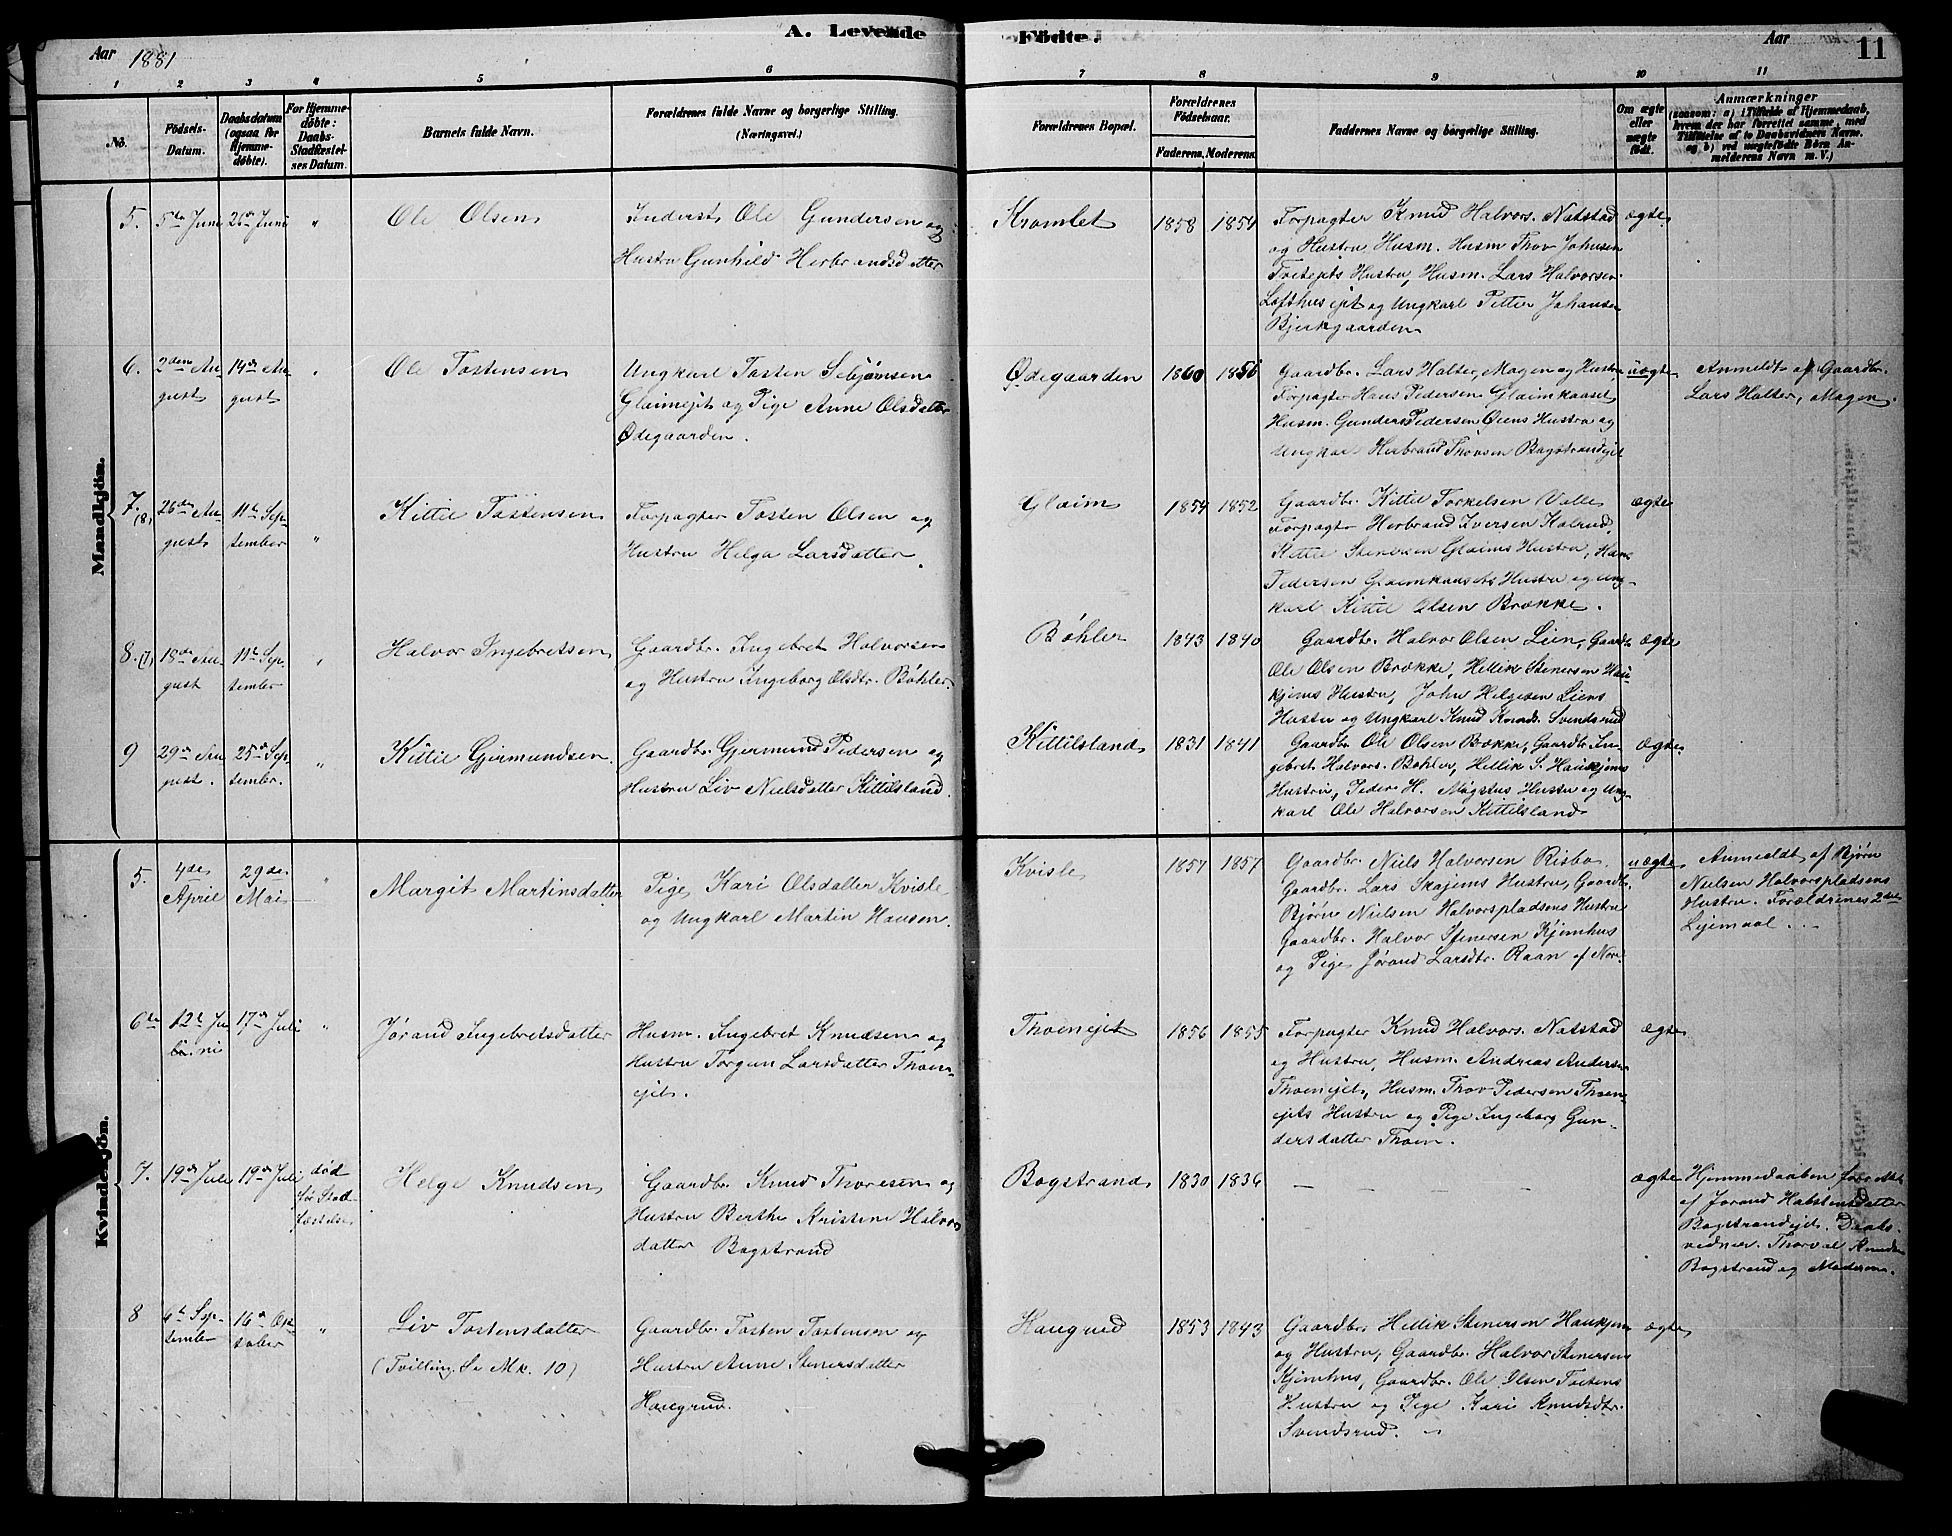 A. Levende Födte.
Aar 1881
Aar
11
1 2 3 4 5 6 7 8 9 10 11
No.
Födsels-
Datum.
Daabsdatum
(ogsaa for
Hjemme-
döbte).
For Hjemme-
döbte:
Daabs-
Stadfæstel-
ses Datum.
Barnets fulde Navn.
Forældrenes fulde Navne og borgerlige Stilling.
(Næringsvei.)
Forældrenes Bopæl.
Forældrenes
Födselsaar.
Faderens. Moderens.
Faddernes Navne og börgerlige Stilling.
Om ægte
eller
uægte
födt.
Anmærkninger
(saasom: a) i Tilfælde af Hjemmedaab,
hvem der har forrettet samme, med
Tilföielse af to Daabsvidners Navne.
og b) ved uægtefödte Börn An-
melderens Navn m. V.)
Mandkjön.
5. 5te Juni 26de Juni " Ole Olsen
Inderst Ole Gundersen og
Hustru Gunhild Herbrandsdatter
Kromlet 1858 1854
Forpagter Knud Halvors. Natstad
og Hustru, Husm. Husm Thov Johnsen
Toetejets Hustru, Husm. Lars Halvorsen
Lofthusejet og Ungkarl Petter Johansen
Bjerkgaarden
ægte
6. 2den Au-
gust
14de Au-
gust
" Ole Tostensen
Ungkarl Tosten Sebjørnsen
Glaimejet og Pige Anne Olsdatter
Ødegaarden.
Ødegaarden 1860 1856
Gaardbr. Lars Halter, Mogen og Hustru
Forpagter Hans Pedersen Glaimkaaset
Husm. Gunder Pedersen Øiens Hustru og
Ungkarl Herbrand Thovsen Bagstrandejet
uægte
Anmeldt af Gaardbr.
Lars Halter, Mogen.
7. (8) 26de Au-
gust
11te Sep-
tember
" Kittil Tostensen
Forpagter Tosten Olsen og
Hustru Helga Larsdatter.
Glaim 1854 1852
Gaardbr. Kittil Torkelsen Valle
Forpagter Herbrand Iversen Kolrud,
Kittil Stenersen Glaims Hustru, Hans
Pedersen Glaimkaasets Hustru og Ung-
karl Kittil Olsen Brække.
ægte
8. (7) 18de Au-
gust
11te Sep-
tember
" Halvor Ingebretsen
Gaardbr. Ingebret Halvorsen
og Hustru Ingeborg Olsdtr. Bøhler.
Bøhler 1843 1840
Gaardbr. Halvor Olsen Lien, Gaardb.
Ole Olsen Brække, Hellik Stenersen Hau-
kjems Hustru, John Helgesen Liens
Hustru og Ungkarl Knud Knuds. Svendsrud
ægte
9 29de Au-
gust.
25de Sep-
tember.
" Kittil Gjermundsen
Gaardbr. Gjermund Pedersen og
Hustru Liv Nielsdatter Kittilsland.
Kittilsland 1831 1841
Gaardbr. Ole Olsen Bække, Gaardbr. In-
gebret Halvors. Bøhler, Hellik S. Haukjems
Hustru, Peder H. Mogstus Hustru og Ung-
karl Ole Halvorsen Kittilsland
ægte
Kvindekjön.
5. 4de
April
29de
Mai
" Margit Martinsdatter
Pige Kari Olsdatter Kvisle
og Ungkarl Martin Hansen.
Kvisle 1857 1857
Gaardbr. Niels Halvorsen Risbo,
Gaardbr. Lars Skajems Hustru, Gaardb.
Bjørn Nielsen Halvorspladsens Hustru
Gaardbr. Halvor Stenersen Kjemhus
og Pige Jørand Larsdtr. Raan af Nore
uægte
Anmeldt af Bjørn
Nielsen Halvorspladsens
Hustru. Forældrenes 2det
Lejemaal...
6te 12te Ju-
ni
17de Juli " Jørand Ingebretsdatter
Husm. Ingebret Knudsen og
Hustru Torgun Larsdatter Thoen-
ejet.
Thoenejet 1856 1855
Forpagter Knud Halvors. Natstad
og Hustru, Husm. Andreas Anders.
Thoenejet, Husm. Thov Pedersen Thoen-
ejets Hustru og Pige Ingeborg Gun-
dersdatter Thoen.
ægte
7. 19de Juli 19de Juli død
før Stad-
fæstelse
Helge Knudsen
Gaardbr. Knud Thoresen og
Hustru Berthe Kristine Halvors
datter Bogstrand
Bogstrand 1830 1836 — — — —
ægte
Hjemmedaaben forrettet
af Jørand Halstensdatter
Bogstrandejet. Daabs-
vidner. Thorval Knudsen
Bogstrand og Moderen.
8 4de Sep-
tember
16de Ok-
tober
" Liv Tostensdatter
(Tvilling, Se Mk. 10)
Gaardbr. Tosten Tostensen og
Hustru Anne Stenersdatter
Haugrud.
Haugrud 1853 1843
Gaardbr. Hellik Stenersen Haukjem
og Hustru, Gaardbr. Halvor Stenersen
Kjemhus, Gaardbr. Ole Olsen Toetens
Hustru og Pige Kari Knudsdtr.
Svendsrud. —
ægte